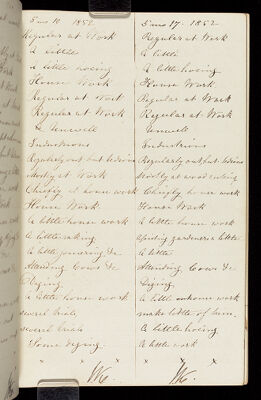 5 mo 10 1852
Regular at Work
A little
A little hoeing
House Work
Regular at Work
Regular at Work
Unwell
Industrious
Regularly out but
Mostly at Work
Chiefly at house work
House Work
A little house work
A little raking
A little &c
Attending Cows &c
Digging
A little house work
several trials
several trials
Some digging
5 mo 17 1852
Regular at Work
A little
A little hoeing
House Work
Regular at Work
Regular at Work
Unwell
Industrious
Regularly out but
Mostly at wood
Chiefly house work
House Work
A little house work
Assisting gardener a little
A little
Attending Cows &c
Digging
A little house work
make
A little hoeing
A little work